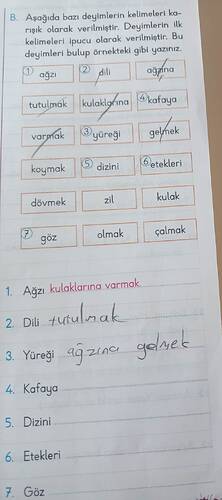 B. Aşağıda bazı deyimlerin kelimeleri ka-
rışık olarak verilmiştir. Deyimlerin ilk
kelimeleri ipucu olarak verilmiştir. Bu
deyimleri bulup örnekteki gibi yazınız.
1 ağzı 2 dili ağzına
tutulmak kulaklarına 4 kafaya
varmak 3 yüreği gelmek
koymak 5 dizini 6 etekleri
dövmek zil kulak
7 göz olmak çalmak
1. Ağzı kulaklarına varmak
2. Dili tutulmak
3. Yüreği ağzına gelmek
4. Kafaya
5. Dizini
6. Etekleri
7. Göz